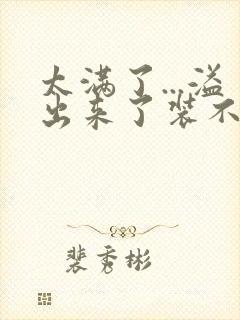 太满了…溢
出来了装不
裴秀彬